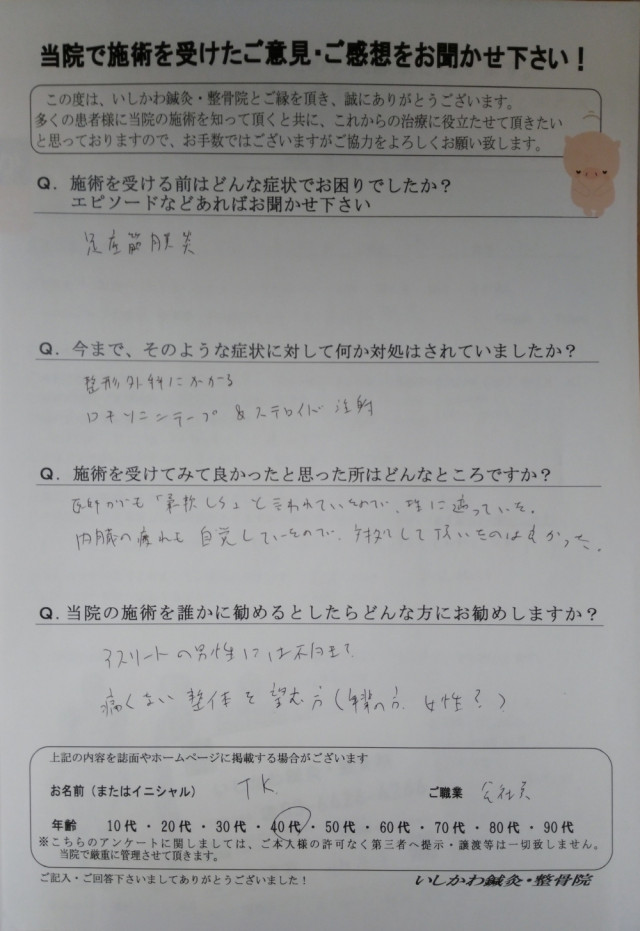 当院で施術を受けたご意見・ご感想をお聞かせ下さい！
この度は、いしかわ鍼灸・整骨院とご縁を頂き、誠にありがとうございます。
多くの患者様に当院の施術を知って頂くと共に、これからの治療に役立たせて頂きたい
と思っておりますので、お手数ではございますがご協力をよろしくお願い致します。
Q．施術を受ける前はどんな症状でお困りでしたか？
エピソードなどあればお聞かせ下さい
足底筋膜炎
Q．今まで、そのような症状に対して何か対処はされていましたか？
整形外科にかかる
ロキソニンテープ & ステロイド注射
Q．施術を受けてみて良かったと思った所はどんなところですか？
「柔軟しろ」と言われていたので、理に適っていた。
内臓の疲れも自覚していたので、対処して頂いたのは良かった。
Q．当院の施術を誰かに勧めるとしたらどんな方にお勧めしますか？
アスリートの男性には不向きで
痛くない整体を望む方（年輩の方、女性？）
上記の内容を誌面やホームページに掲載する場合がございます
お名前（またはイニシャル） T K ご職業 会社員
年齢 10代・20代・30代・40代・50代・60代・70代・80代・90代
※こちらのアンケートに関しましては、ご本人様の許可なく第三者へ提示・譲渡等は一切致しません。
当院で厳重に管理させて頂きます。
ご記入・ご回答下さいましてありがとうございました！ いしかわ鍼灸・整骨院